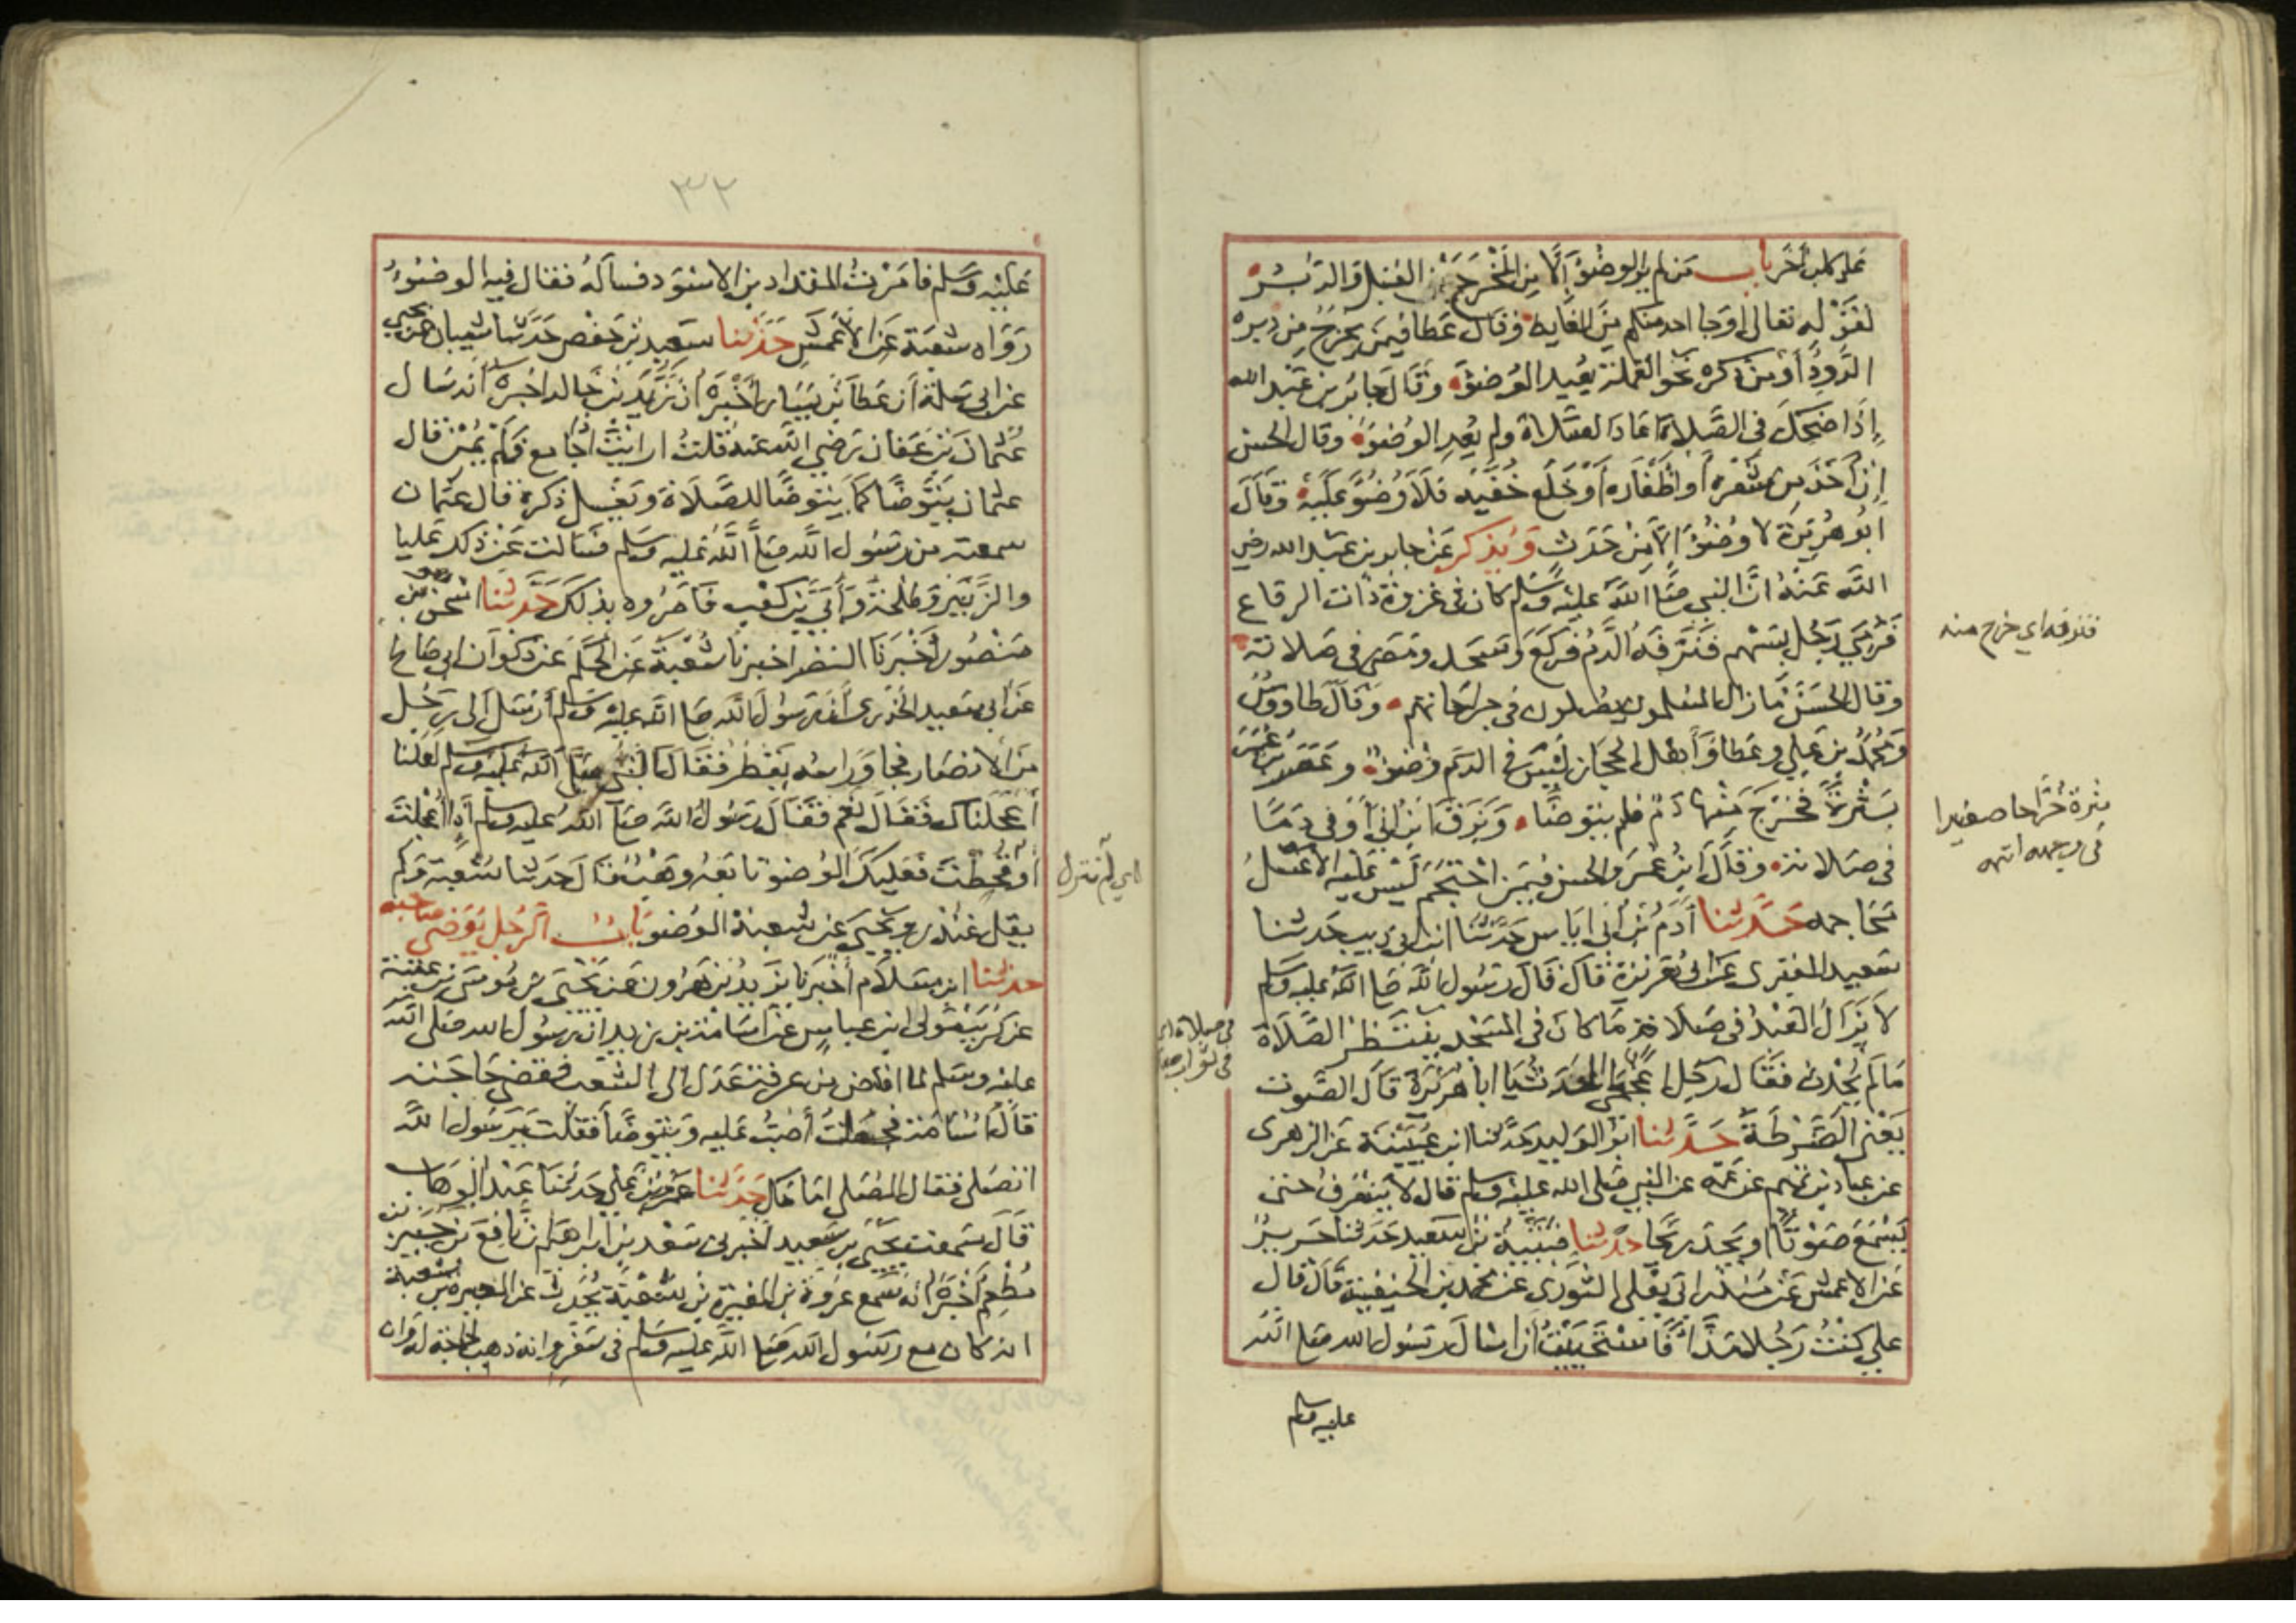 على كلب اخر باب من لم ير الوضوء إلا من المخرجين القبل والدبر
لقوله تعالى اوجا احد منكم من الغايط وقال عطا فيمن يخرج من دبره
الدود أو من ذكره نحو القملة يعيد الوضوء وقال جابر بن عبد الله
إذا ضحك في الصلاة اعاد الصلاة ولم يعد الوضوء وقال الحسن
إن أخذ من شعره أو اظفاره أو خلع خفيه فلا وضوء عليه وقال
ابو هريرة لا وضوء إلا من حدث ويذكر عن جابر بن عبد الله رضي
الله عنه ان النبي صلى الله عليه وسلم كان في غزوة ذات الرقاع
فرمي رجل بسهم فنزفه الدم فركع وسجد ومضى في صلاته
وقال الحسن ما زال المسلمون يصلون في جراحاتهم وقال طاووس
ومحمد بن علي وعطا وأهل الحجاز ليس في الدم وضوء وعصر بن عمر
بثرة فخرج منها دم فلم يتوضا وبزق ابن أبي أوفى دما
في صلاته وقال ابن عمر والحسن فيمن احتجم ليس عليه الا غسل
محاجمه حدثنا آدم بن أبي اياس حدثنا ابن ابي ذيب حدثنا
سعيد المقبري عن ابي هريرة قال قال رسول الله صلى الله عليه وسلم
لا يزال العبد في صلاة ما كان في المسجد ينتظر الصلاة
ما لم يحدث فقال رجل اعجمي ما الحدث يا ابا هريرة قال الصوت
يعني الضرطة حدثنا ابو الوليد حدثنا ابن عيينة عن الزهري
عن عباد بن تميم عن عمه عن النبي صلى الله عليه وسلم قال لا ينصرف حتى
يسمع صوتا او يجد ريحا حدثنا قتيبة بن سعيد حدثنا جرير
عن الاعمش عن منذر ابي يعلى الثوري عن محمد بن الحنيفية قال قال
علي كنت رجلا مذاء فاستحييت أن اسال رسول الله صلى الله
عليه وسلم
فنزفه اي خرج منه
بثرة خراجا صغيرا
في وجهه انته
في صلاة اي
في ثواب صلاة
٣٢
عليه وسلم فامرت المقداد بن الاسود فساله فقال فيه الوضوء
رواه شعبة عن الأعمش حدثنا سعيد بن حفص حدثنا شيبان عن يحيى
عن ابي سلمة أن عطا بن يسار أخبره أن زيد بن خالد اخبره أنه سال
عثمان بن عفان رضي الله عنه قلت ارايت اذا جامع فلم يمن قال
عثمان يتوضا كما يتوضا للصلاة ويغسل ذكره قال عثمان
سمعته من رسول الله صلى الله عليه وسلم فسالت عن ذلك عليا
والزبير وطلحة وأبي بن كعب فامروه بذلك حدثنا اسحق بن
منصور أخبرنا النضر اخبرنا شعبة عن الحكم عن ذكوان ابي صالح
عن ابي سعيد الخدري أن رسول الله صلى الله عليه وسلم أرسل إلى رجل
من الانصار فجا وراسه يقطر فقال النبي صلى الله عليه وسلم لعلنا
أعجلناك فقال نعم فقال رسول الله صلى الله عليه وسلم إذا أعجلت
أو قحطت فعليك الوضوء تابعه وهب قال حدثنا شعبة ولم
يقل غندر ويحيى عن شعبة الوضوء باب الرجل يوضي صاحبه
حدثنا ابن سلام أخبرنا يزيد بن هرون عن يحيى عن موسى بن عقبة
عن كريب مولى ابن عباس عن اسامة بن زيد ان رسول الله صلى الله
عليه وسلم لما افاض من عرفة عدل الى الشعب فقضى حاجته
قال اسامة فجعلت أصب عليه ويتوضا فقلت يرسول الله
اتصلي فقال المصلى امامك حدثنا عمرو بن علي حدثنا عبد الوهاب
قال سمعت يحيى بن سعيد اخبرني سعد بن ابراهيم أن نافع بن جبير بن
مطعم أخبره انه سمع عروة بن المغيرة بن شعبة يحدث عن المغيرة بن شعبة
انه كان مع رسول الله صلى الله عليه وسلم في سفر وانه ذهب لحاجة له وان
اي لم تنزل